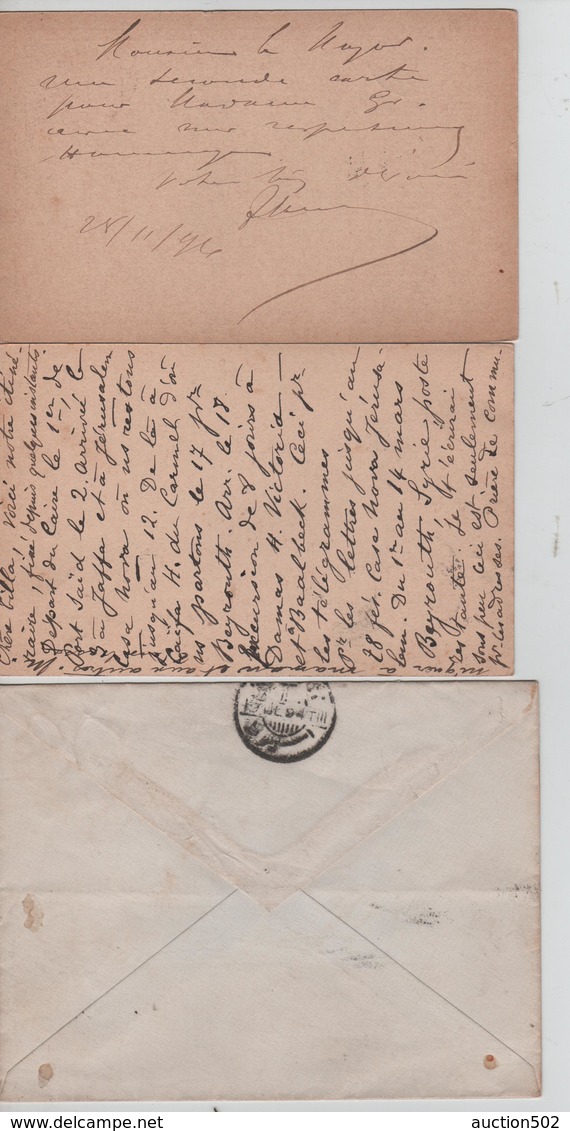 Monsieur le Major.
une seconde carte
pour Madame Gr.
avec mes respectueux
Hommages
Votre dévoué
28/11/94
Chère Villa! Voici notre itiné-
raire fixé depuis quelques instants.
Départ du Caire le 1er de
Port Saïd le 2 arrivée le
3 à Jaffa et à Jérusalem
Casa Nova où ns restons
jusqu'au 12. De là à
Caïfa H. du Carmel d'où
ns partons le 17 pr
Beyrouth. Arr. le 18.
Excursion de 8 jours à
Damas H. Victoria
et Baalbeck. Ceci pr
les télégrammes
Pr les lettres jusqu'au
28 fév. Case Nova Jérusa-
lem. Du 1er au 14 mars
Beyrouth Syrie poste
restante. Je t'écrirai
sous peu ceci est seulement
pr les adresses. Prière de commu-
niquer à maman et aux autres.
auction502